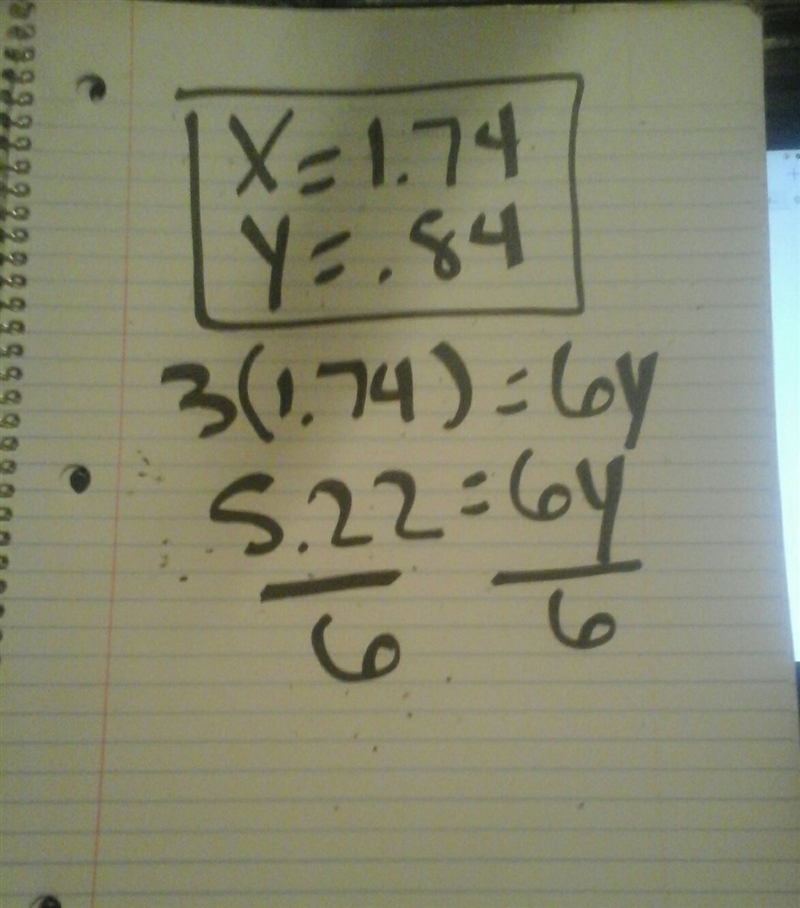 X = 1.74
Y = .84
3(1.74) = 6y
5.22 = 6y
6 6